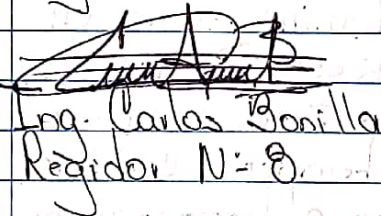 Ing. Carlos Bonilla
Regidor N=8.